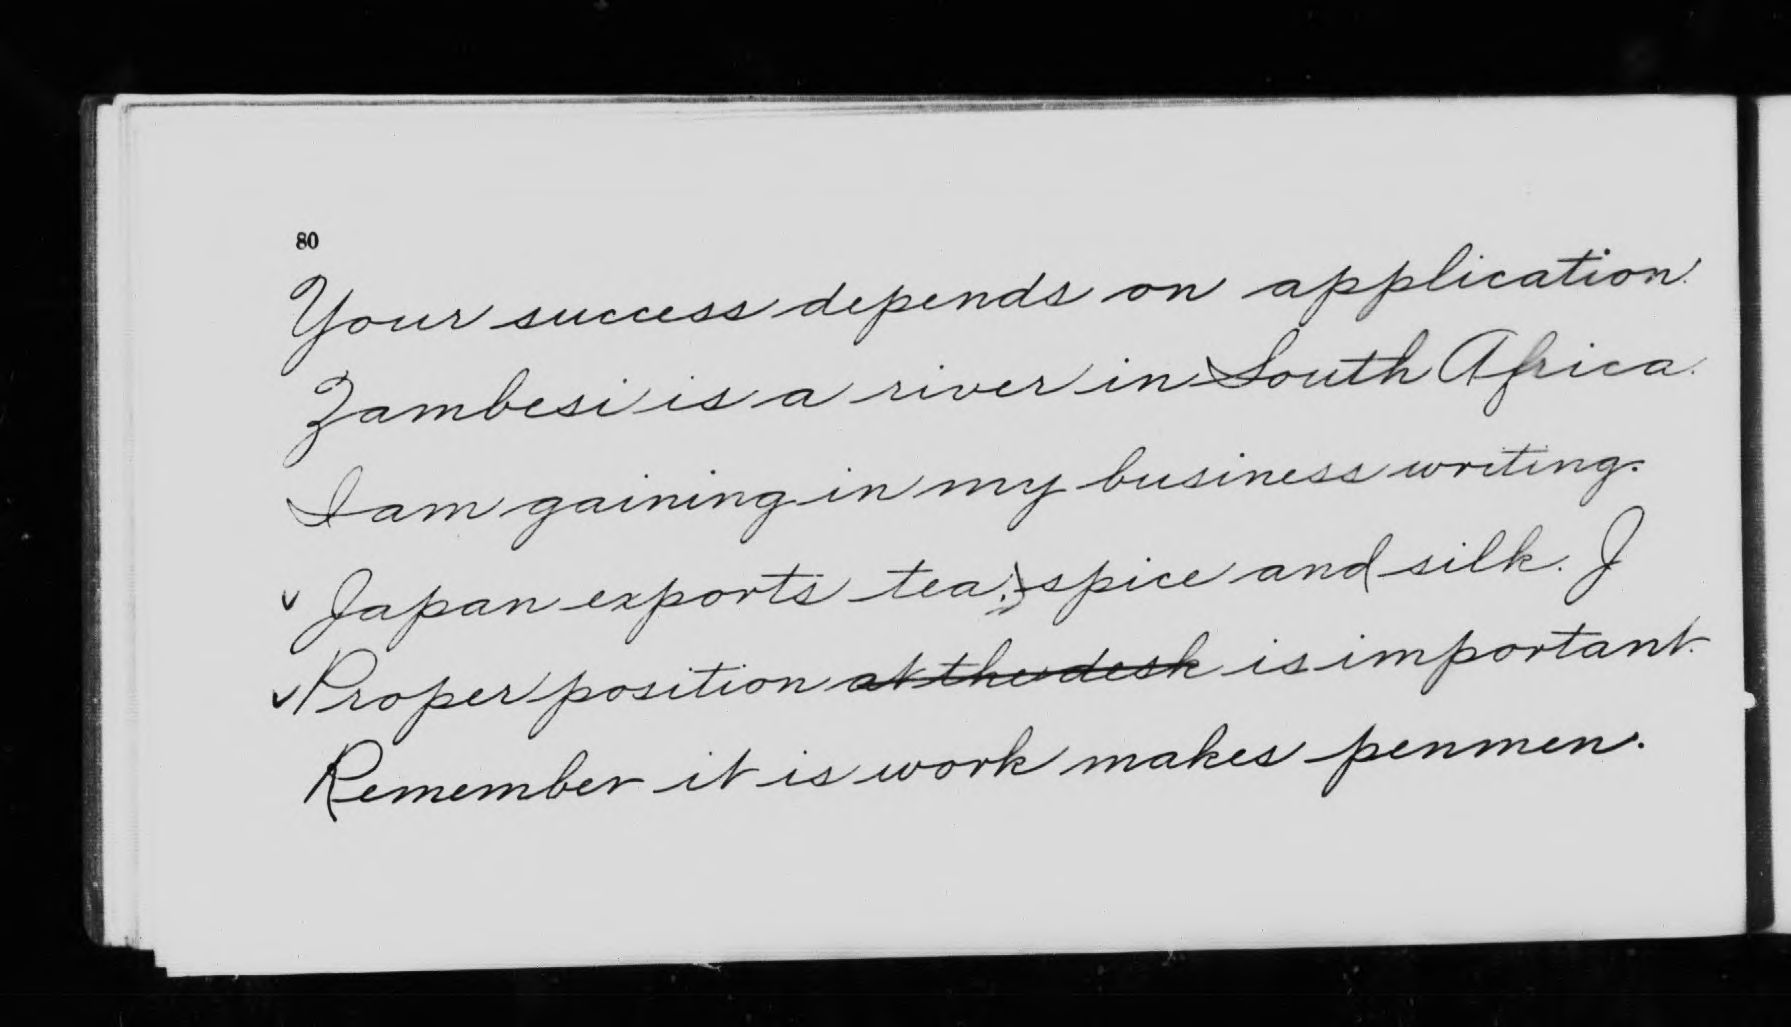 80
Your success depends on application.
Zambesi is a river in South Africa.
I am gaining in my business writing.
Japan exports tea, spice and silk. J
Proper position at the desk is important.
Remember it is work makes penmen.